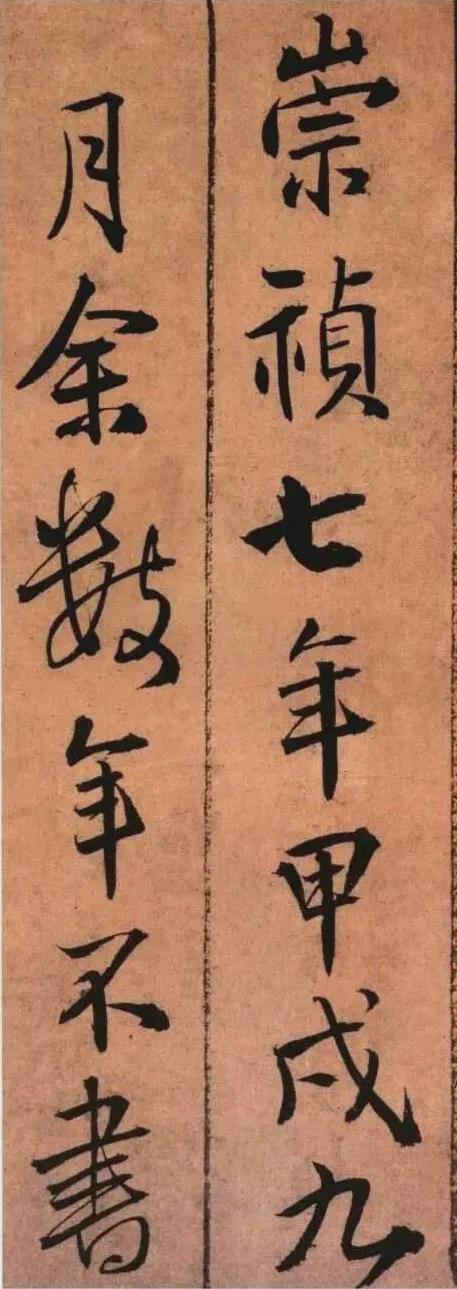 崇禎七年甲戌九
月余数年不書